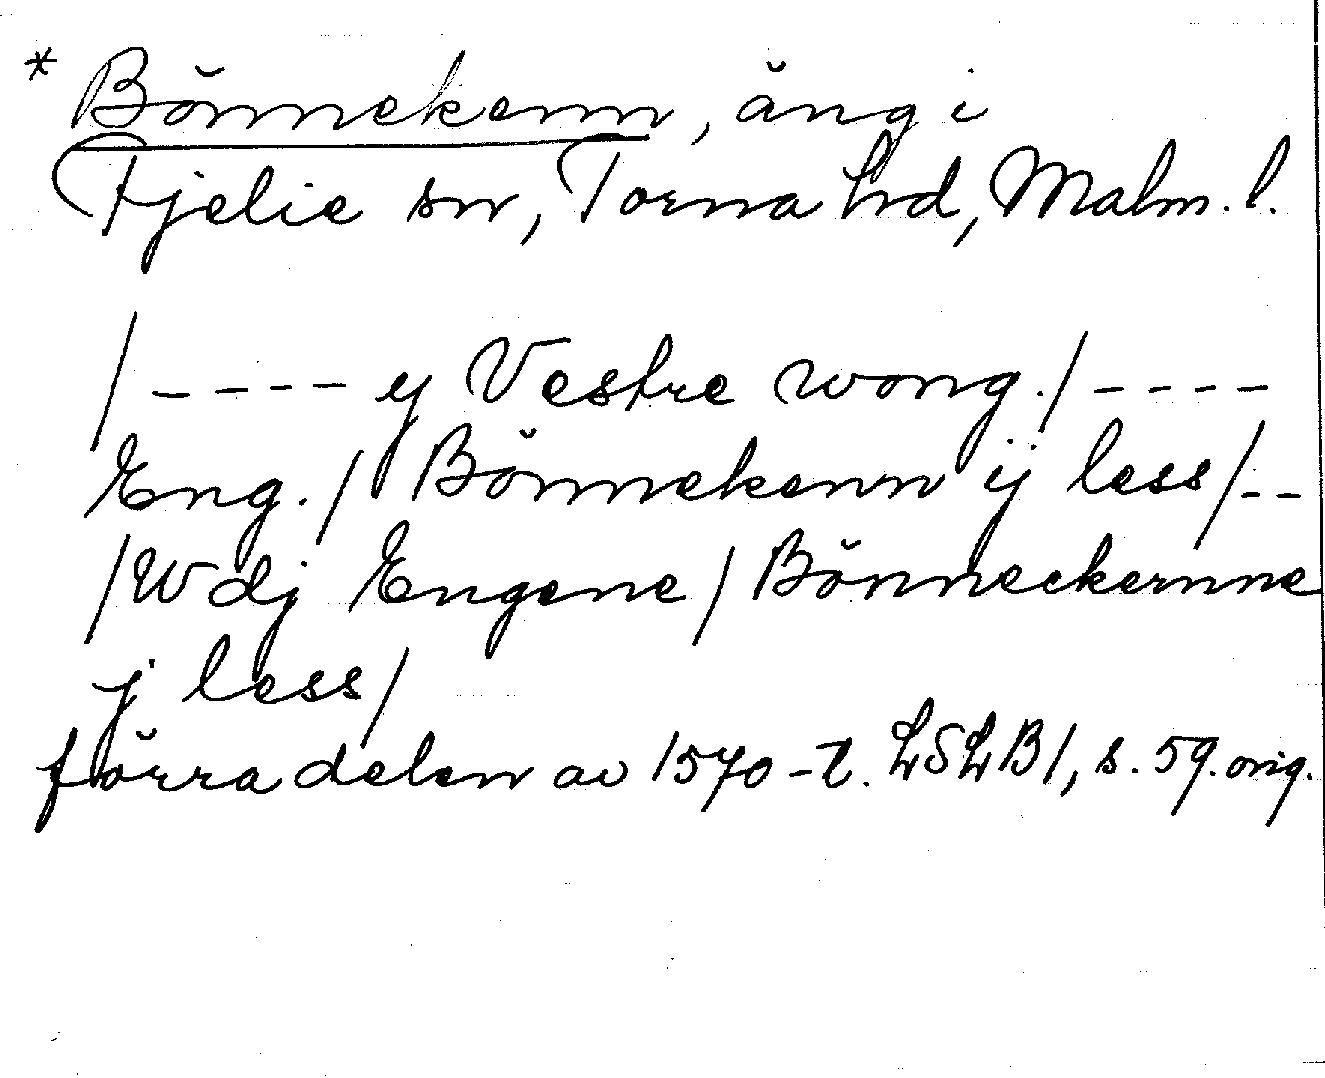 * Bönnekenn, äng i
Fjelie sn, Torna hd, Malm. l.
/ - - - - y Vestre wong./ - - - -
Eng./ Bönnekenn ij less/ - -
/Wdj Engene/ Bönneckernne
j less/
förra delen av 1570-t. LSLB1, s. 59. orig.